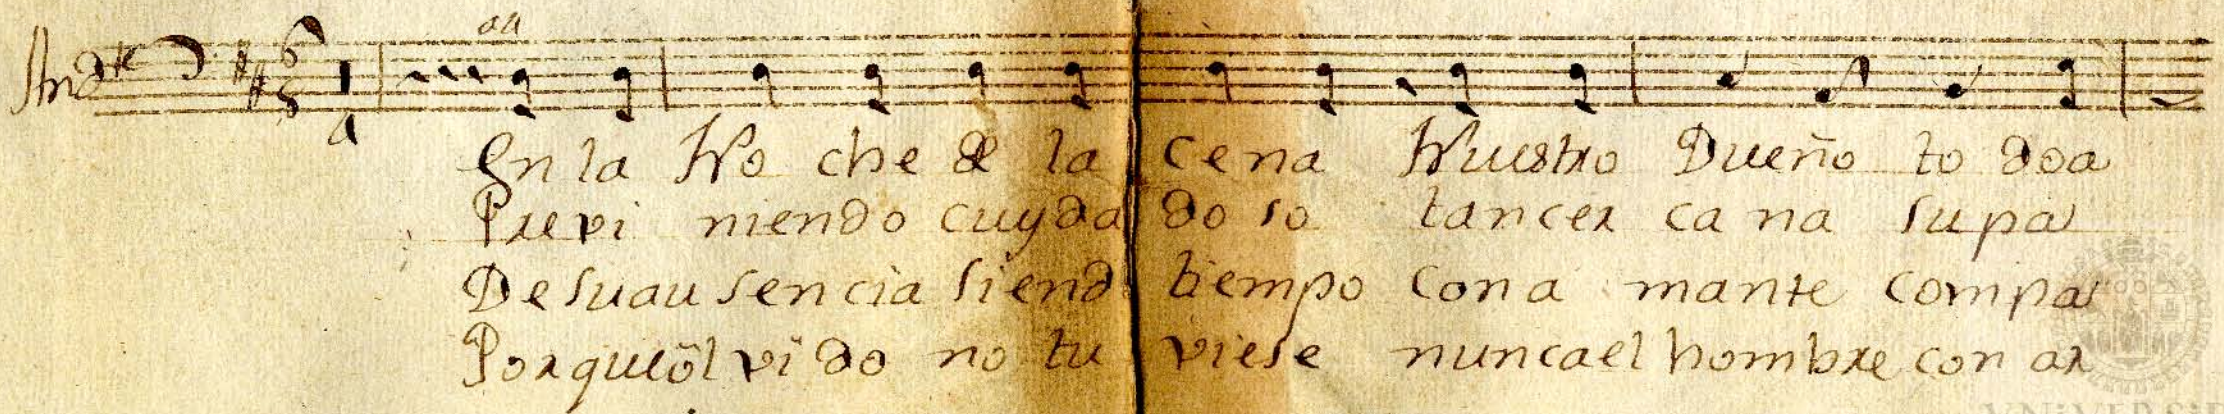 And.te
En la No che de la Cena Nuestro Dueño to doa
Previ niendo cuyda do so tan cer ca na su pa
De su au sen cia siend tiempo con a mante compa
Porqueôl vi do no tu viese nunca el hombre con ar